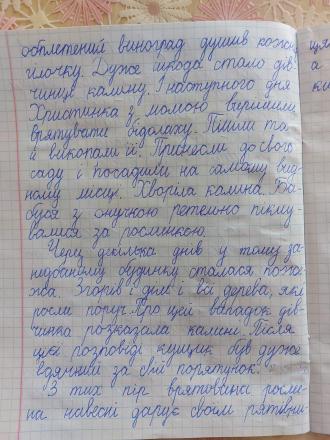 обплетений виноград душив кожну
гілочку. Дуже шкода стало дів
чинці калину. І наступного дня
Христинка з мамою вирішили
врятувати бідолаху. Пішли та
й викопали її. Принесли до свого
саду і посадили на самому вид
ному місці. Хворіла калина. Ба-
буся з онучкою ретельно піклу-
валися за рослинкою.
Через декілька днів у тому за-
недбаному будинку сталася поже-
жа. Згорів і дім і всі дерева, які
росли поруч. Про цей випадок дів-
чинка розказала калині. Після
цієї розповіді кущик був дуже
вдячний за свій порятунок.
З тих пір врятована росли-
на навесні дарує своїм рятівни-
щя
а